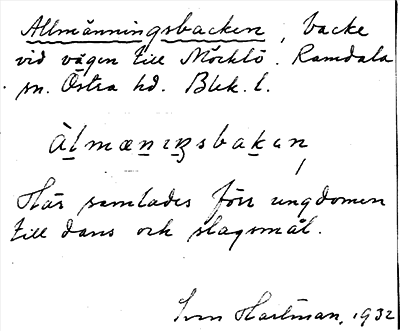 Allmänningsbacken, backe
vid vägen till Möcklö. Ramdala
sn. Östra hd. Blek. l.
Àlmænıŋsbakan
Här samlades förr ungdomen
till dans och slagsmål.
Sven Hartman, 1932